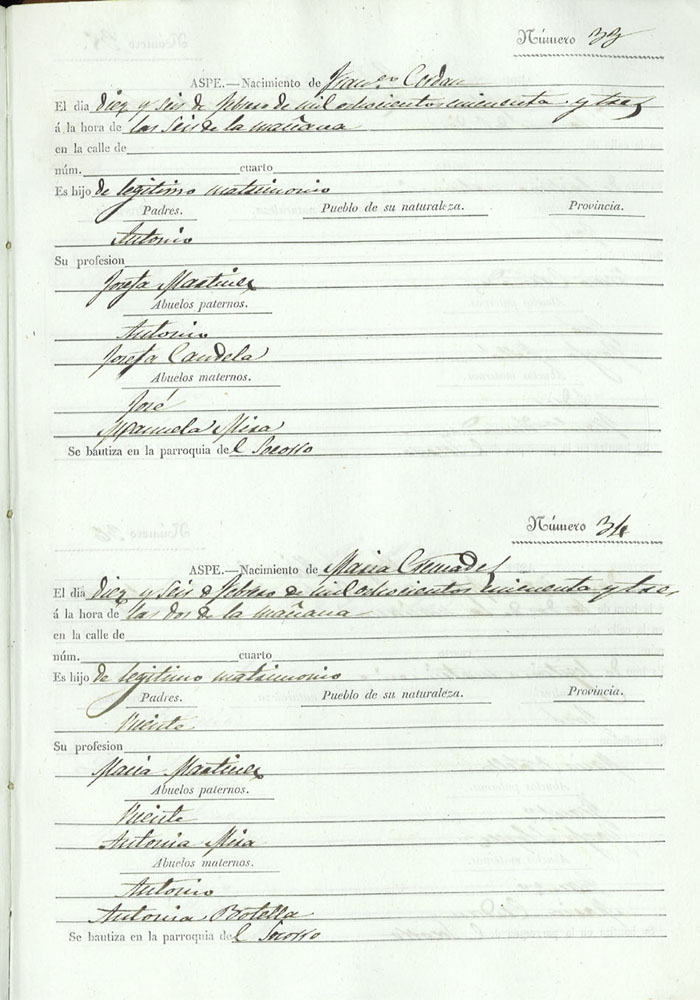 Número 33
ASPE.—Nacimiento de Fran.co Cerdan
El dia diez y seis de febrero de mil ochocientos cincuenta y tres
á la hora de las seis de la mañana
en la calle de
núm. cuarto
Es hijo de legitimo matrimonio
Padres. Pueblo de su naturaleza. Provincia.
Antonio
Su profesion
Josefa Martinez
Abuelos paternos.
Antonio
Josefa Candela
Abuelos maternos.
José
Manuela Mira
Se bautiza en la parroquia del Socorro
Número 34
ASPE.—Nacimiento de Maria Cremades
El dia diez y seis de febrero de mil ochocientos cincuenta y tres
á la hora de las dos de la mañana
en la calle de
núm. cuarto
Es hijo de legitimo matrimonio
Padres. Pueblo de su naturaleza. Provincia.
Vicente
Su profesion
Maria Martinez
Abuelos paternos.
Vicente
Antonia Mira
Abuelos maternos.
Antonio
Antonia Botella
Se bautiza en la parroquia del Socorro